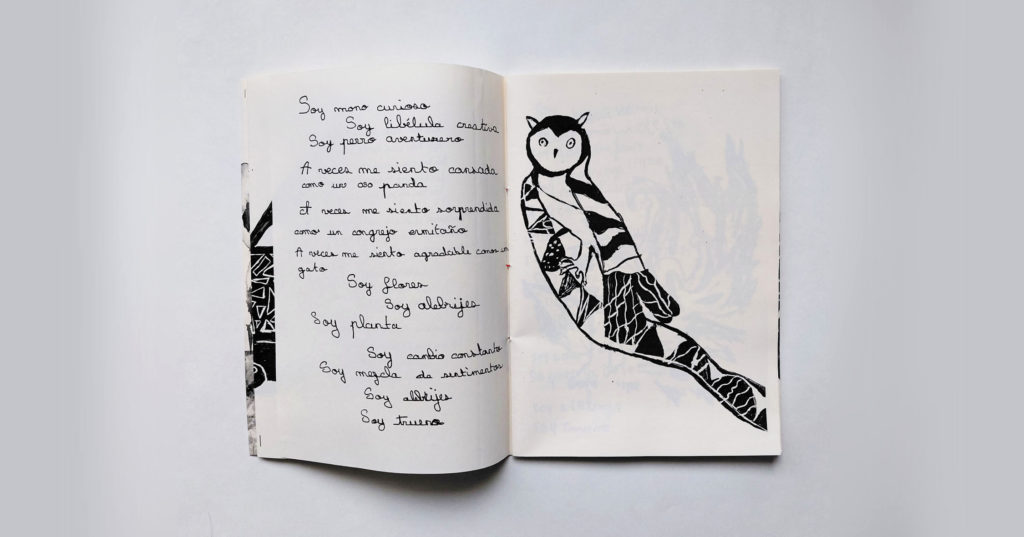 Soy mono curioso
Soy libélula creativa
Soy perro aventurero
A veces me siento cansada
como un oso panda
A veces me siento sorprendida
como un congrejo ermitaño
A veces me siento agradable como un
gato
Soy flores
Soy alebrijes
Soy planta
Soy cambio constante
Soy mezcla de sentimentos
Soy alebrijes
Soy trueno